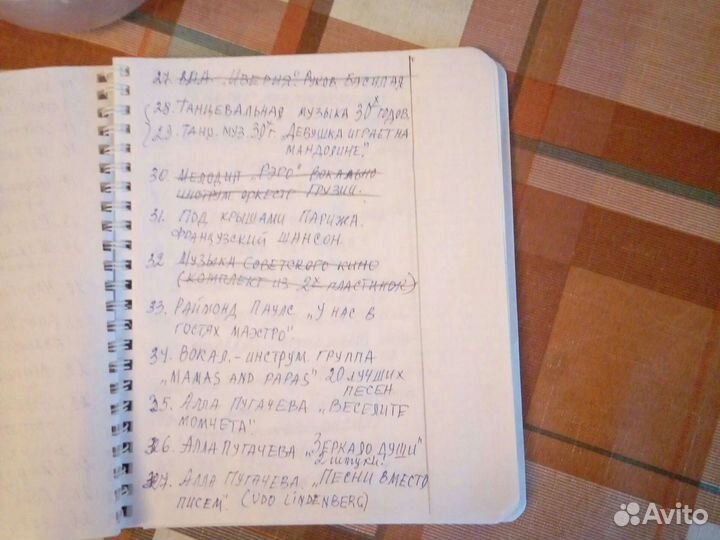 27. ВИА "ИВЕРИЯ". РУКОВ БАСИЛАЯ
28. ТАНЦЕВАЛЬНАЯ МУЗЫКА 30х ГОДОВ.
29. ТАНЦ. МУЗ. 30х Г. „ДЕВУШКА ИГРАЕТ НА
МАНДОЛИНЕ."
30. МЕЛОДИИ „РЭРО" ВОКАЛЬНО
ИНСТРУМ ОРКЕСТР ГРУЗИИ.
31. ПОД КРЫШАМИ ПАРИЖА.
ФРАНЦУЗСКИЙ ШАНСОН
32 МУЗЫКА СОВЕТСКОГО КИНО
(КОМПЛЕКТ ИЗ 2х ПЛАСТИНОК)
33. РАЙМОНД ПАУЛС „У НАС В
ГОСТЯХ МАЭСТРО".
34. ВОКАЛ.-ИНСТРУМ. ГРУППА
„MAMAS AND PAPAS" 20 ЛУЧШИХ
ПЕСЕН
35. АЛЛА ПУГАЧЕВА „ВЕСЕЛИТЕ
МОМЧЕТА"
36. АЛЛА ПУГАЧЕВА „ЗЕРКАЛО ДУШИ"
2 ШТУКИ.
37. АЛЛА ПУГАЧЕВА „ПЕСНИ ВМЕСТО
ПИСЕМ". (UDO LINDENBERG)
Avito